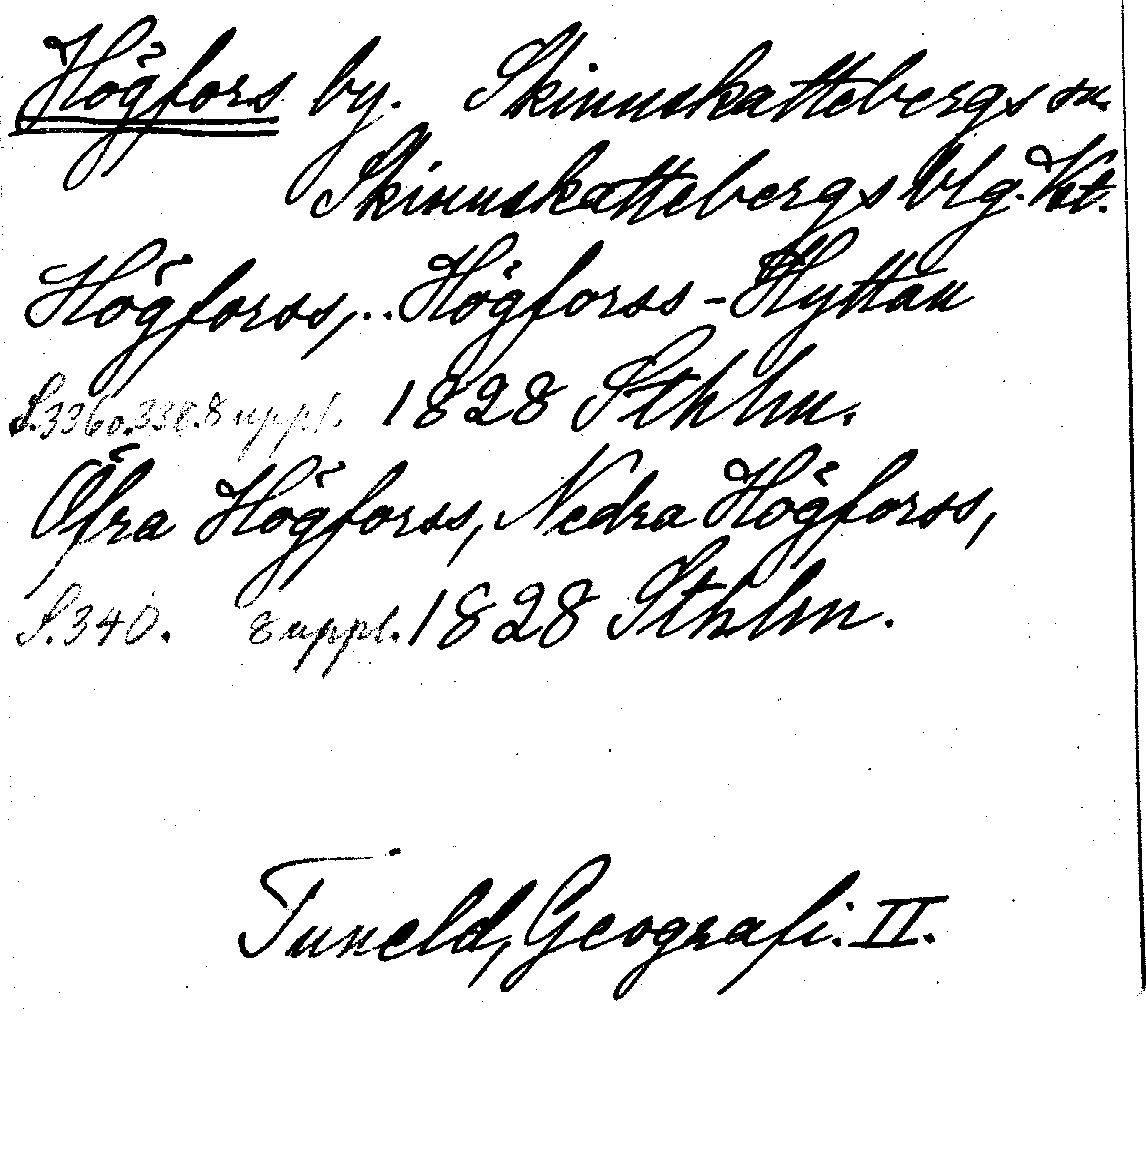 Högfors by. Skinnskattebergs sn.
Skinnskattebergs blg. Vst.
Högforss, .. Högforss-Hyttan
S. 336 o. 338. 8 uppl. 1828 Sthlm.
Öfra Högforss, Nedra Högforss,
S. 340. 8 uppl. 1828 Sthlm.
Tuneld, Geografi. II.